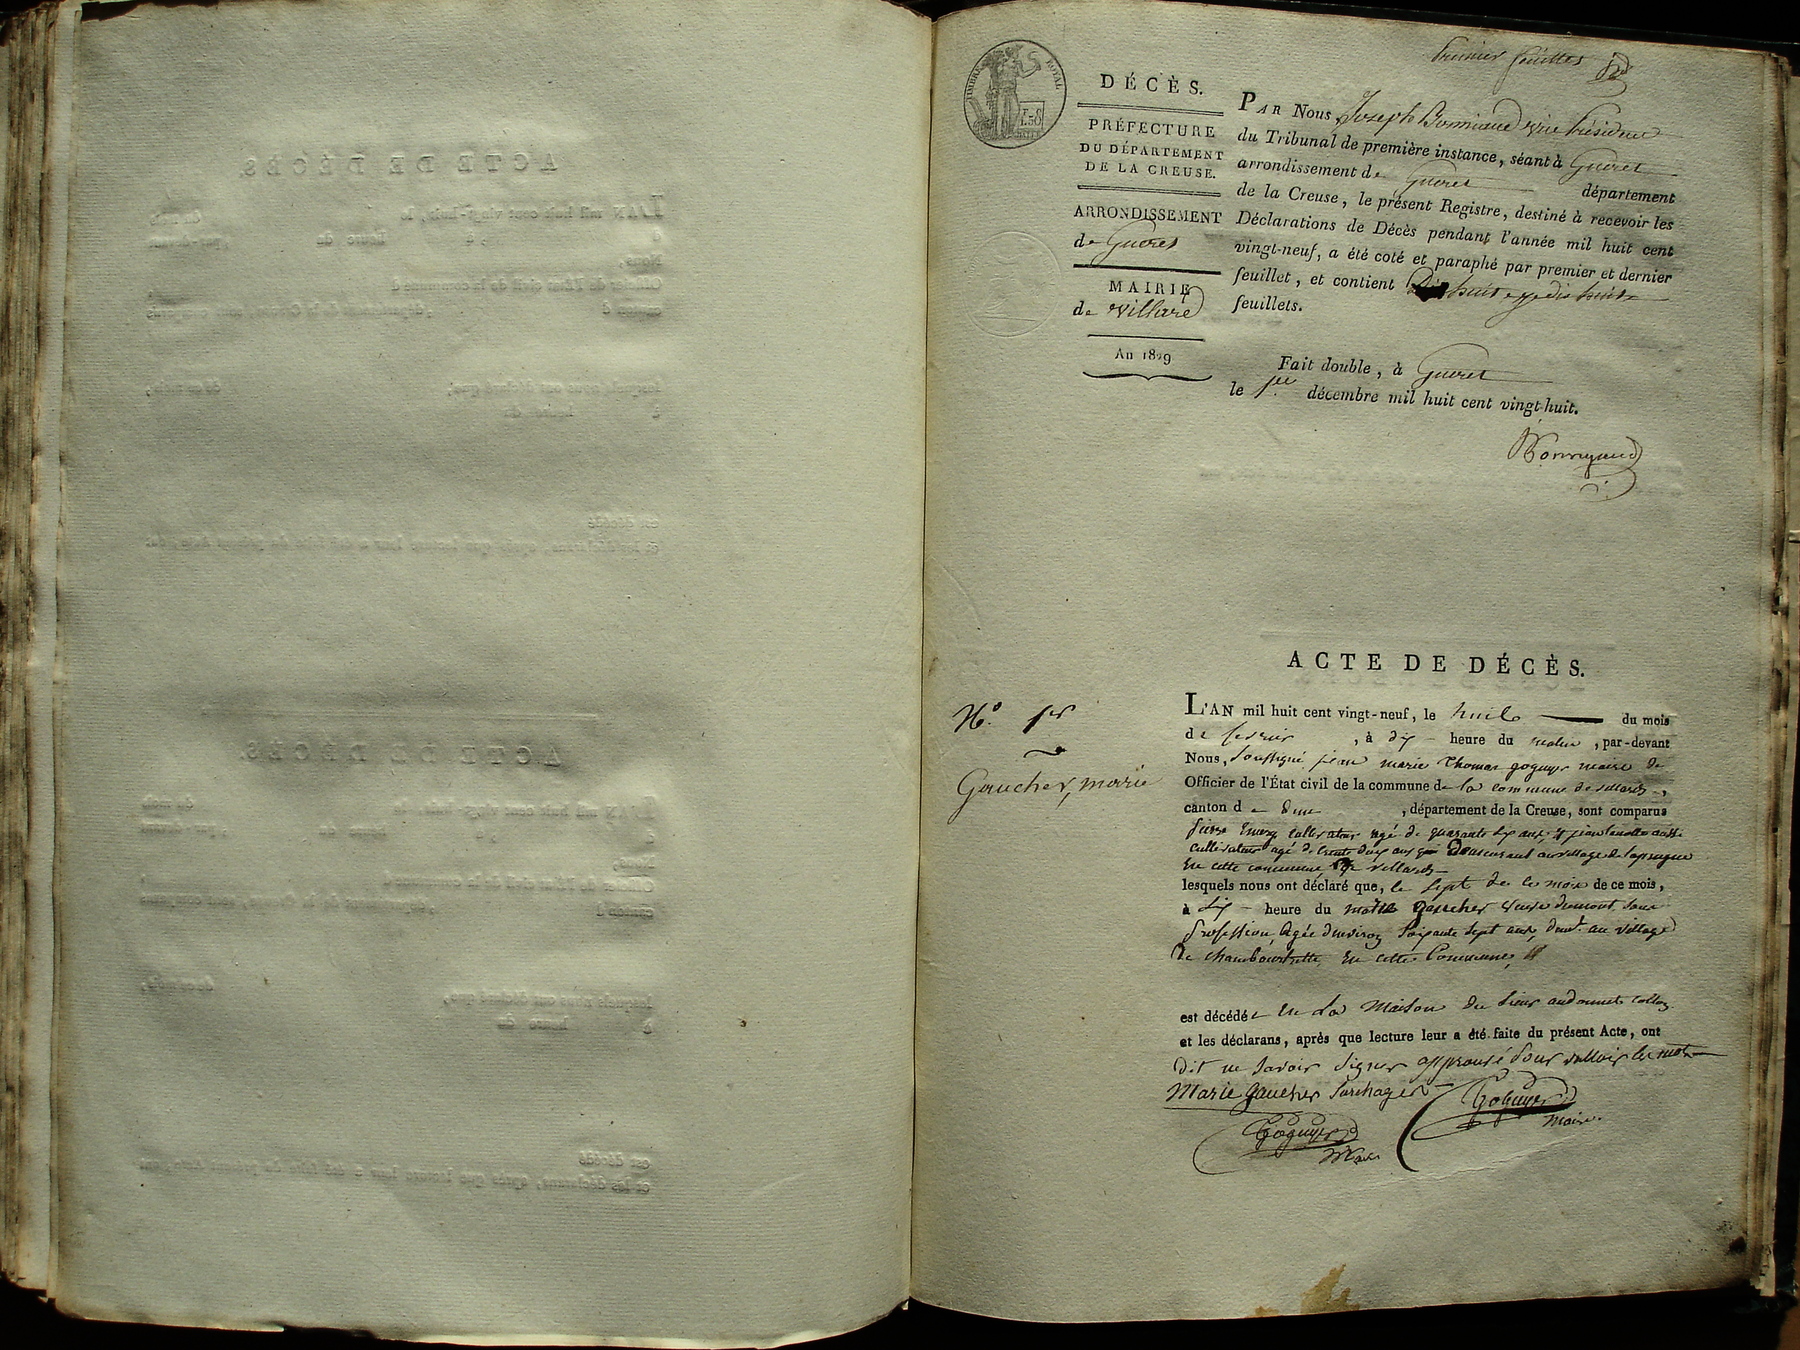 premier feuillet
TIMBRE ROYAL
DÉCÈS.
PRÉFECTURE
DU DÉPARTEMENT
DE LA CREUSE.
ARRONDISSEMENT
de Gueret
MAIRIE
de villard
An 1829
PAR Nous Joseph Bonniaud vice président
du Tribunal de première instance, séant à Gueret
arrondissement de Gueret département
de la Creuse, le présent Registre, destiné à recevoir les
Déclarations de Décès pendant l'année mil huit cent
vingt-neuf, a été coté et paraphé par premier et dernier
feuillet, et contient
feuillets.
Fait double, à Gueret
le 1er décembre mil huit cent vingt-huit.
ACTE DE DÉCÈS.
N.° 1er
Gaucher, marie
L'AN mil huit cent vingt-neuf, le huite du mois
de fevrier, à dix heure du matin, par-devant
Nous, soussigné jean marie thomas goguyer maire de
Officier de l'État civil de la commune de la commune de villards,
canton de dun, département de la Creuse, sont comparus
cultivateur agé de quarante six ans,
cultivateur agé de trente deux ans demeurant au village de
En cette commune de villards
lesquels nous ont déclaré que, le sept de ce mois de ce mois,
à dix heure du matin gaucher veuve dumont sans
profession, agée d'environ soixante sept ans, demt. au village
De En cette Commune,
est décédée en La Maison du sieur
et les déclarans, après que lecture leur a été faite du présent Acte, ont
dit ne savoir signer approuvé pour valloir les mots
Marie gaucher surchagés
Goguyer
Maire.
Goguyer
Maire